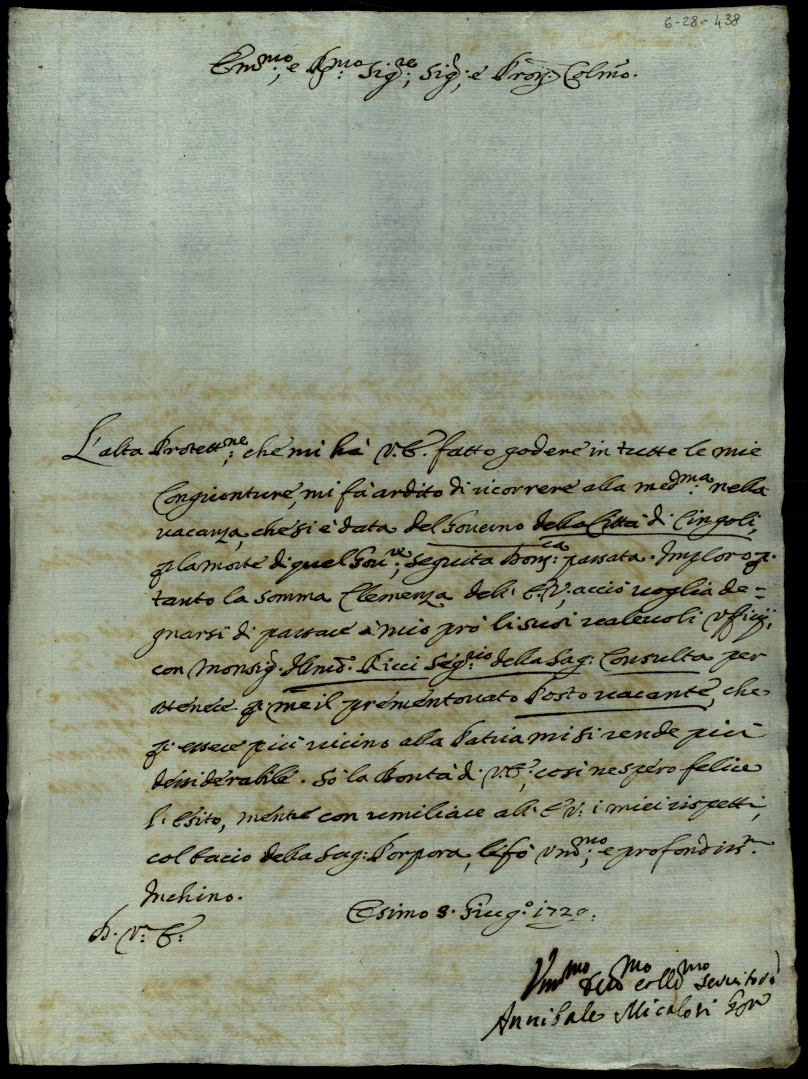 6-28-438
Em.mo, e R.mo Sig.re, Sig.r, e Pron Colmo.
L'alta Protett.ne, che mi hà V.E. fatto godere in tutte le mie
Congiunture, mi fà ardito di ricorrere alla med.ma nella
vacanza, che si è data del Governo della Città di Cingoli,
p la morte di quel Gov.re, seguita passata. Imploro p
tanto la somma Clemenza dell' E.V., acciò voglia de=
gnarsi di passare à mio prò li suoi valevoli Ufficij,
con Monsig.r Ricci Seg.rio della Sag: Consulta per
ottenere p me il prementovato Posto vacante, che
p essere più vicino alla Patria mi si rende più
desiderabile. Sò la Bontà di V.E., così ne spero felice
l'Esito, mentre con umiliare all' E.V. i miei rispetti,
col bacio della Sag: Porpora, le fò um.mo, e profondiss.
Inchino.
D. V. E.
Esimo 8. Giug.o 172
Um.mo Dev.mo et Obl.mo Servitore
Annibale Micalori Gov.re